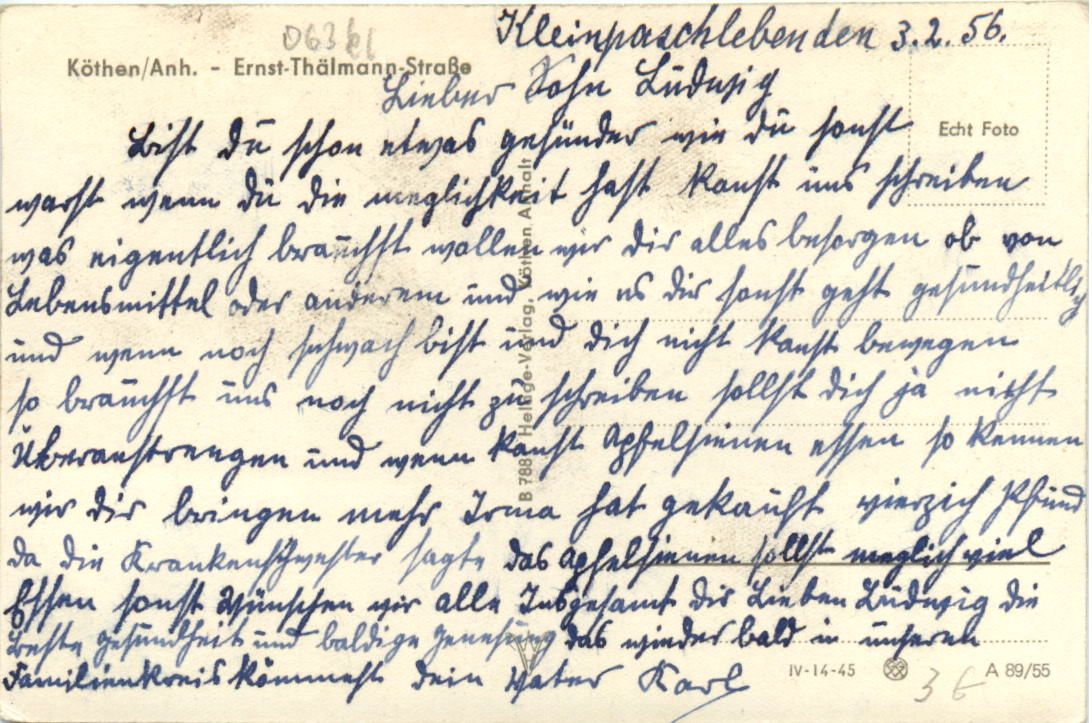 063 kl
Kleinpaschleben den 3.2.56.
Köthen/Anh. - Ernst-Thälmann-Straße
Lieber Sohn Ludwig
Echt Foto
Bist du schon etwas gesünder wie du sonst
warst wenn du die meglichkeit hast kanst uns schreiben
was eigentlich brauchst wollen wir dir alles besorgen ob von
Lebensmittel oder anderem und wie es dir sonst geht gesundheitlig
und wenn noch schwach bist und dich nicht kanst bewegen
so brauchst uns noch nicht zu schreiben sollst dich ja nicht
Überanstrengen und wenn kanst Apfelsienen essen so kennen
wir dir bringen mehr Irma hat gekauft vierzich Pfund
da die Krankenschwester sagte das Apfelsienen sollst meglich viel
Essen sonst Wünschen wir alle Insgesamt dir Lieben Ludwig die
Beste gesundheit und baldige genesung das wieder bald in unseren
Familienkreis kömmest dein Vater Karl
B 788 Heldge-Verlag, Köthen Anhalt
IV-14-45
A 89/55
3 €